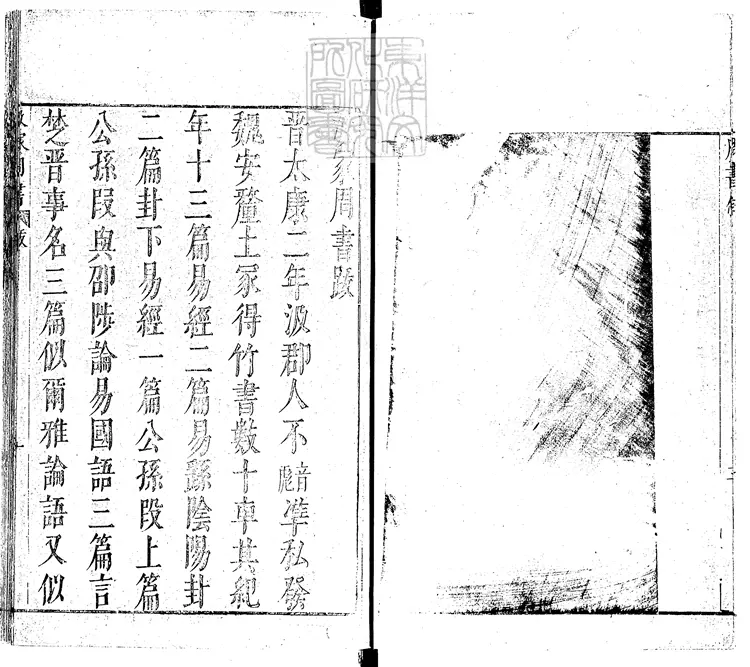 東洋文
化研究
所圖書
周書跋
晉太康二年汲郡人不音彪準私發
魏安釐王冢得竹書數十車其紀
年十三篇易經二篇易繇陰陽卦
二篇卦下易經一篇公孫段上篇
公孫段與邵陟論易國語三篇言
楚晉事名三篇似爾雅論語又似